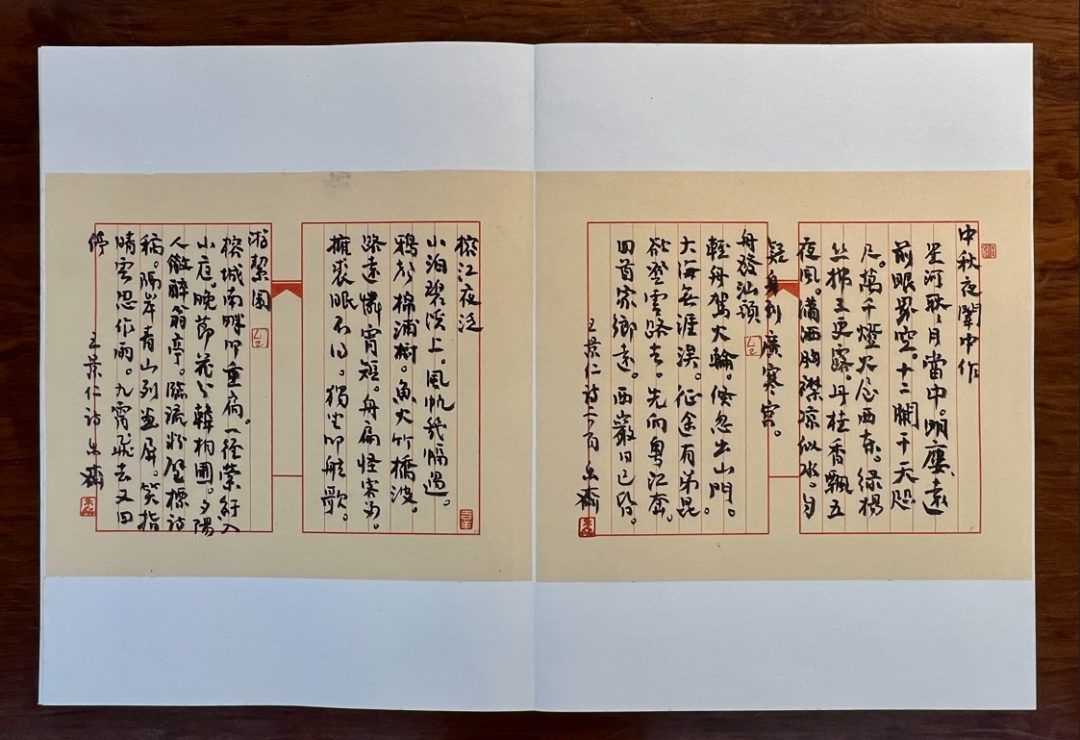 中秋夜闈中作
星河耿耿月當中。明廔遠
前眼界空。十二闌干天咫
尺。萬千燈火西東。綠楊
丝拂五更露。丹桂香飄五
夜風。瀟洒胸襟凉似水。
疑身到廣寒宮。
舟發汕頭
輕舟駕火輪。倏忽出山門。
大海無涯涘。征途有弟昆。
欲登雲路去。先向粵江奔。
回首家鄉遠。西巖日已昏。
王景仁詩二首
榕江夜泛
小泊碧溪上。風帆幾幅過。
鴉影棉浦樹。魚火竹橋波。
路遠憐宵短。舟扁怪客多。
擁裘眠不得。獨坐叩舷歌。
游絜園
榕城南畔叩重扃。一徑縈紆入
小庭。晚節花分韓相圃。夕陽
人散醉翁亭。臨流粉壁標詩
稿。隔岸青山列畫屏。笑指
晴雲思作雨。九霄飛去又回
停
王景仁詩